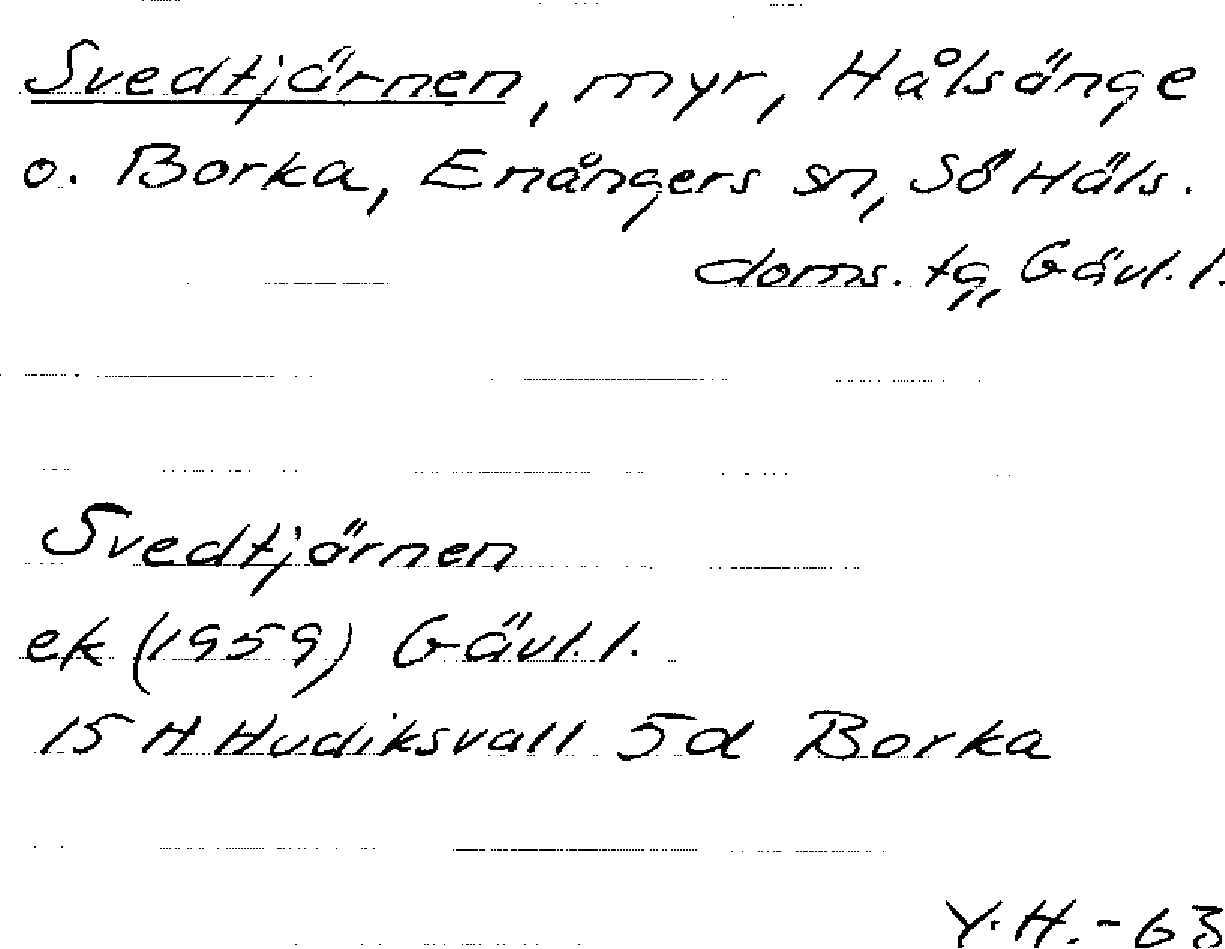 Svedtjärnen, myr, Hålsänge
o. Borka, Enångers sn, Sö Häls.
doms. tg, Gävl. l.
Svedtjärnen
ek (1959) Gävl. l.
15 H Hudiksvall 5d Borka
Y. H. - 63